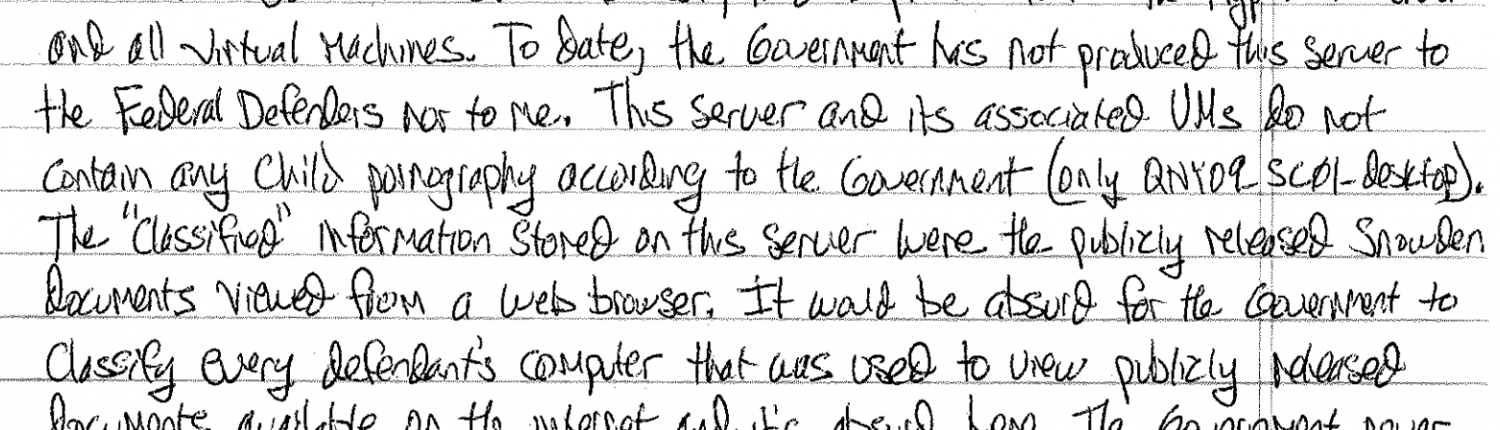 and all virtual machines. To date, the Government has not produced this server to
the Federal Defenders nor to me. This server and its associated VMs do not
contain any child pornography according to the Government (only QNY09_SC01-desktop).
The "classified" information stored on this server were the publicly released Snowden
documents viewed from a web browser. It would be absurd for the Government to
classify every defendant's computer that was used to view publicly released
documents available on the internet and it's absurd here. The Government never